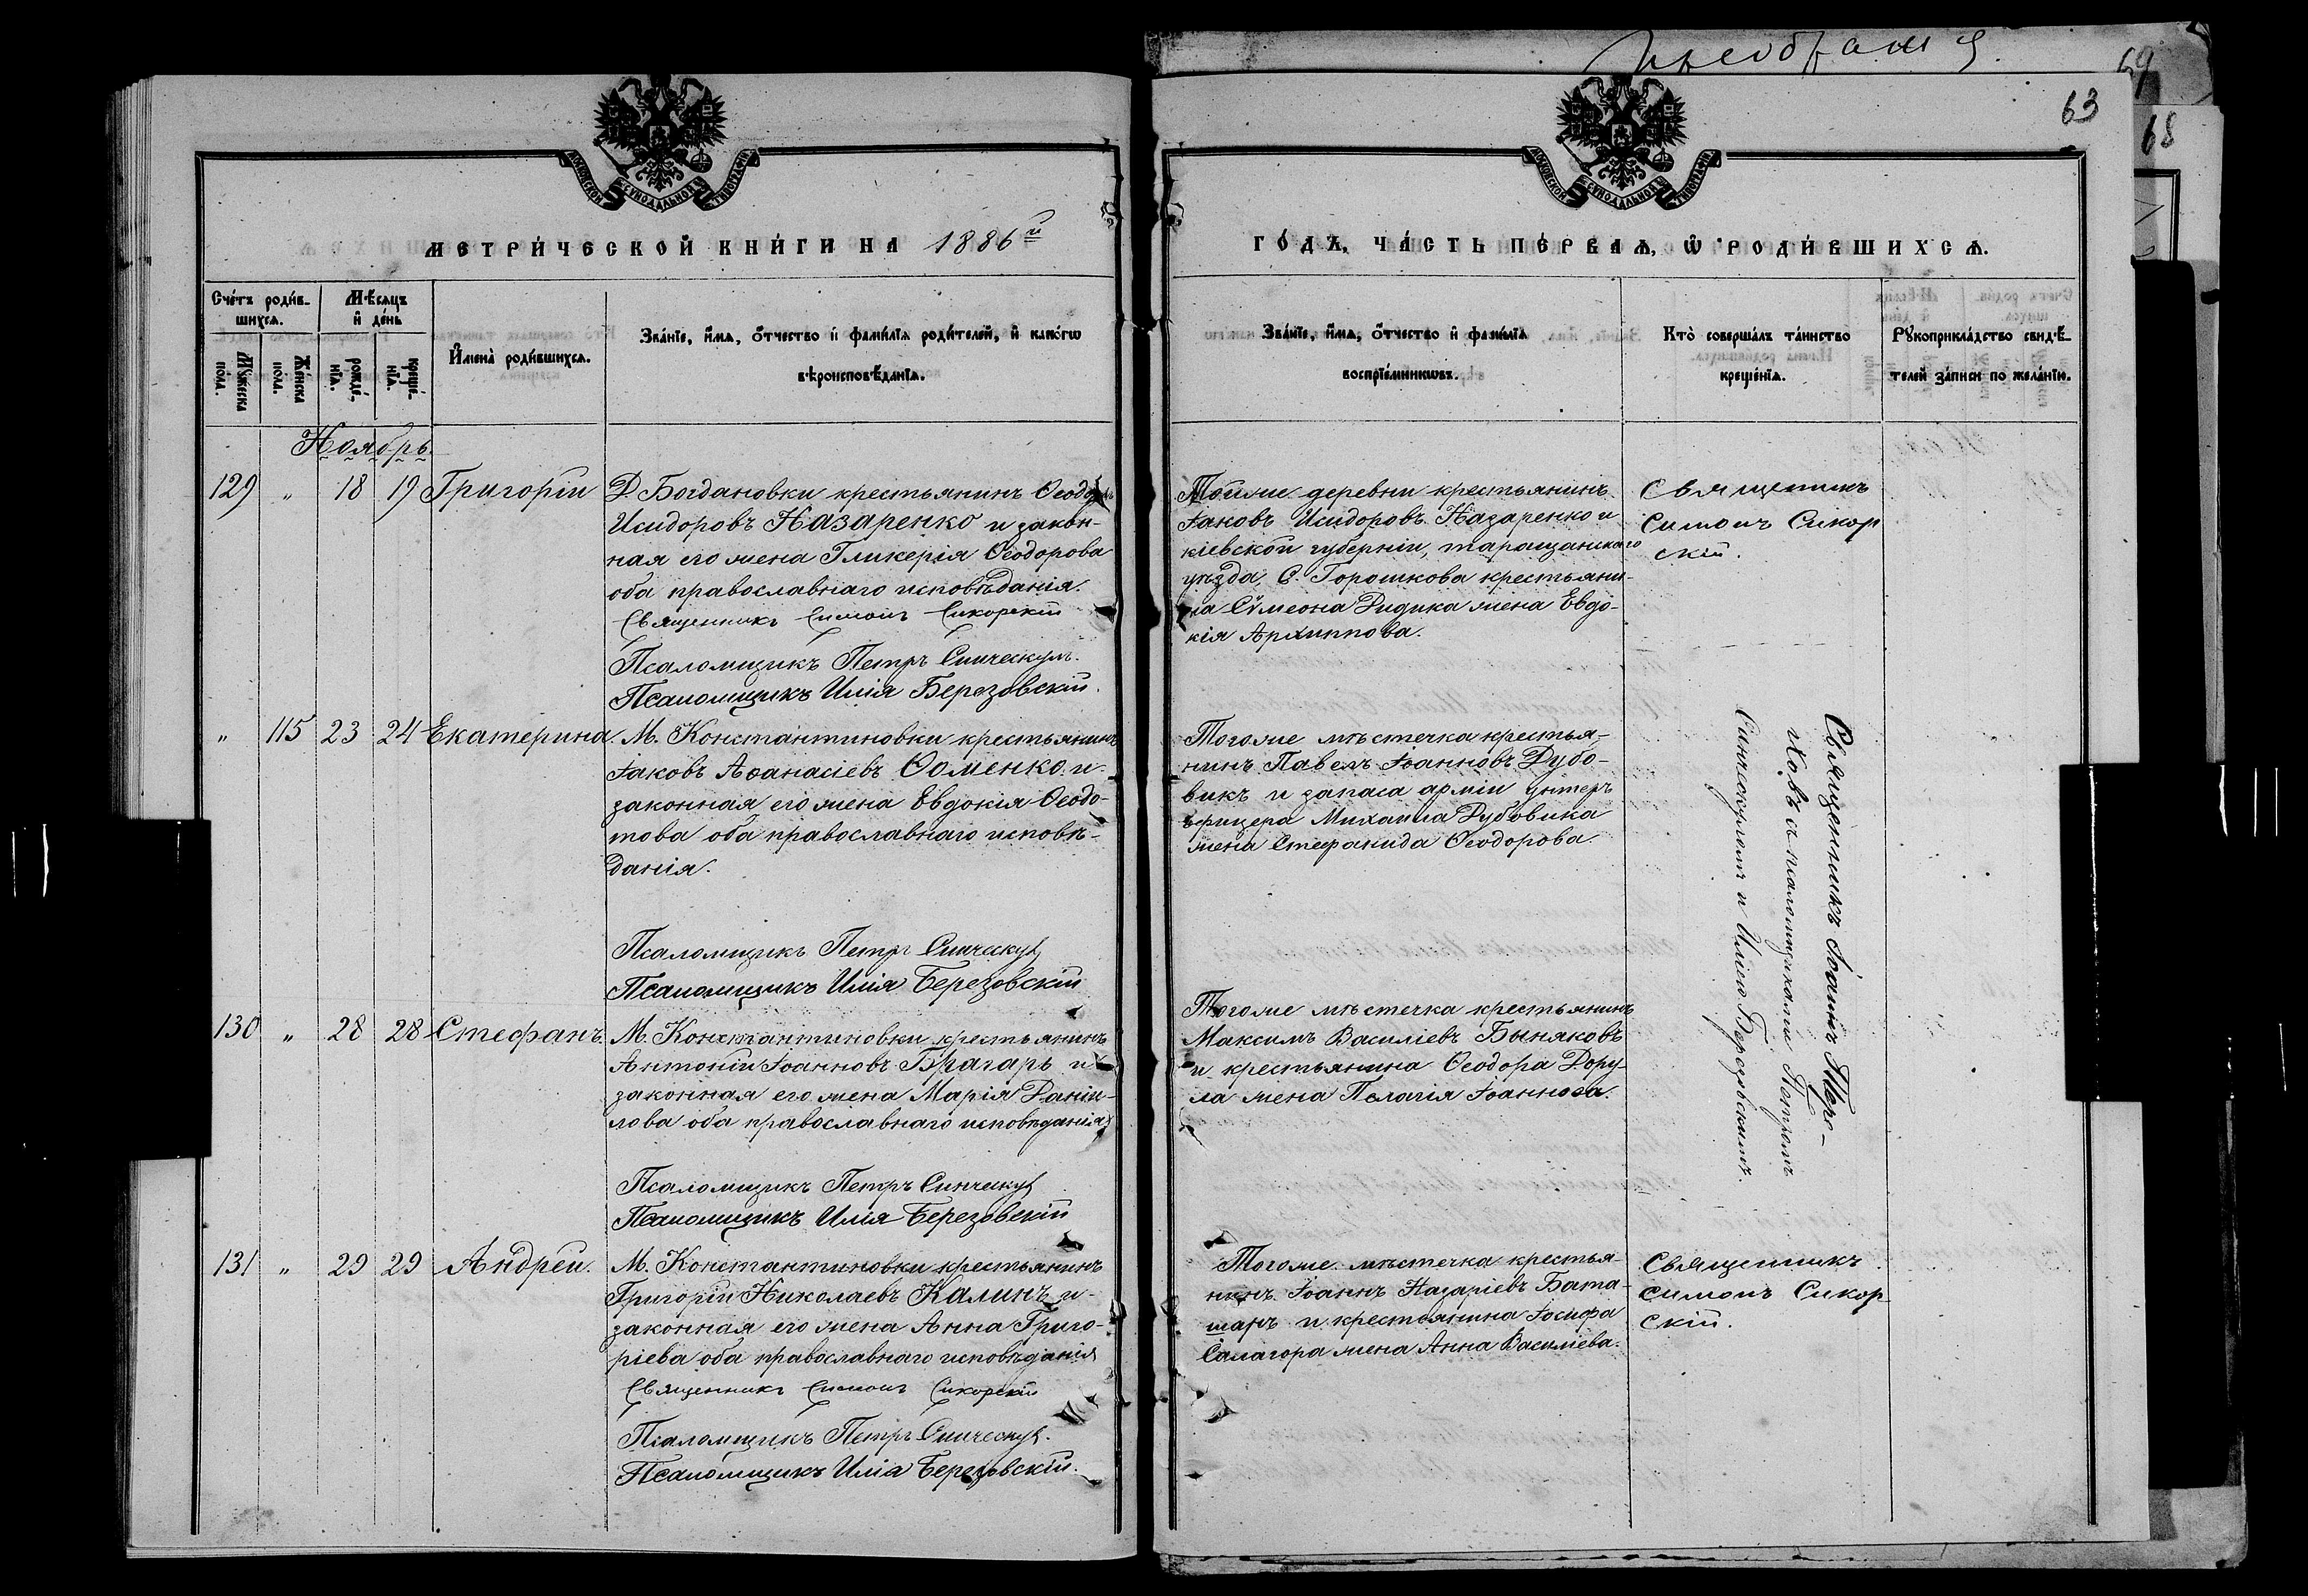 63
69
68
МОСКОВСКОЙ СѴНОДАЛЬНОЙ ТИПОГРАФІИ
МОСКОВСКОЙ СѴНОДАЛЬНОЙ ТИПОГРАФІИ
МЕТРИ́ЧЕСКОЙ КНИ́ГИ НА 1886й
ГО́ДЪ, ЧА́СТЬ ПЕ́РВАѦ, Ѡ РОДИ́ВШИХСѦ.
Сче́тъ роди́в-
шихсѧ.
Мѣ́сѧцъ
и҆ де́нь
Мꙋ́жеска
по́ла.
Же́нска
по́ла.
рожде́-
нїѧ.
креще́-
нїѧ.
И҆мена̀ роди́вшихсѧ.
Зва́нїе, и҆́мѧ, ѻ҆́тчество и҆ фами́лїѧ роди́телей, и҆ како́гѡ
вѣроисповѣ́данїѧ.
Зва́нїе, и҆́мѧ, ѻ҆́тчество и҆ фами́лїѧ
воспрїе́мникѡвъ.
Кто̀ соверша́лъ та́инство
креще́нїѧ.
Рꙋкоприкла́дство свидѣ́-
телей за́писи по жела́нїю.
Ноябрь.
129 " 18 19 Григорій
Д. Богдановки крестьянинъ Ѳеодоръ
Исидоровъ Назаренко и закон-
ная его жена Гликерія Ѳеодорова
оба православнаго исповѣданія.
Священникъ Симонъ Сикорскій
Псаломщикъ Петръ
Псаломщикъ Илія Березовскій.
Тойже деревни крестьянинъ
Іаковъ Исидоровъ Назаренко и
кіевской губерніи, таращанскаго
уѣзда, С. Горошкова крестьяни-
на Сѵмеона Дидика жена Евдо-
кія Архиппова.
Священникъ
Симонъ Сикор
скій.
" 115 23 24 Екатерина.
М. Константиновки крестьянинъ
Іаковъ Аѳанасіевъ Ѳоменко и
законная его жена Евдокія Ѳеодо-
това оба православнаго исповѣ-
данія.
Псаломщикъ Петръ
Псаломщикъ Илія Березовскій
Тогоже мѣстечка крестья-
нинъ Павелъ Іоанновъ Дубо-
викъ и запаса арміи унтеръ
офицера Михаила Дубовика
жена Стефанида Ѳеодорова.
Священникъ Іоаннъ
съ псаломщиками Петромъ
и Иліею Березовскимъ.
130 " 28 28 Стефанъ.
М. Константиновки крестьянинъ
Антоній Іоанновъ Брагарь и
законная его жена Марія Даніи-
лова оба православнаго исповѣданія
Псаломщикъ Петръ
Псаломщикъ Илія Березовскій
Тогоже мѣстечка крестьянинъ
Максимъ Василіевъ Быняковъ
и крестьянина Ѳеодора Дору-
ла жена Пелагія Іоаннова.
131 " 29 29 Андрей.
М. Константиновки крестьянинъ
Григорій Николаевъ Калинъ и
законная его жена Анна Григо-
ріева оба православнаго исповѣданія
Священникъ Симонъ Сикорскій
Псаломщикъ Петръ
Псаломщикъ Илія Березовскій.
Тогоже мѣстечка крестья-
нинъ Іоаннъ Назаріевъ Бата-
шанъ и крестьянина Іосифа
Салагора жена Анна Василіева.
Священникъ
Симонъ Сикор
скій.